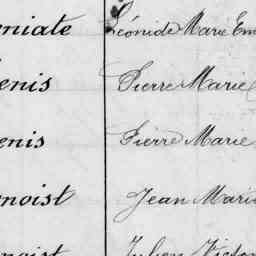 eniate Léonide Marie Em
enis Pierre Marie
enis Pierre Marie
enoist Jean Marie
enoist Julien Victor